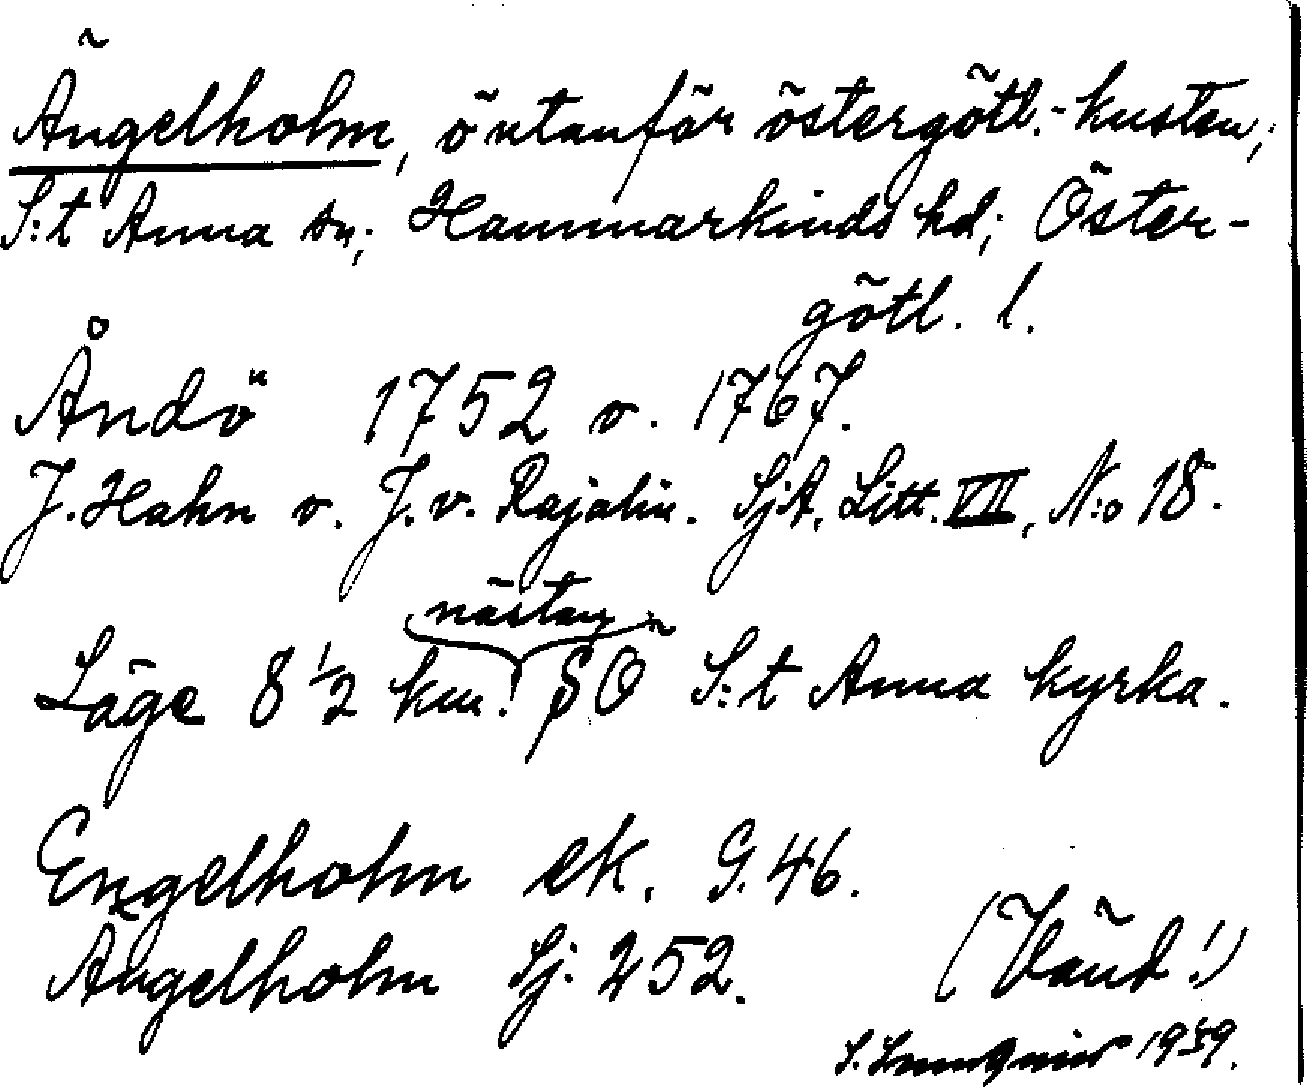 Ängelholm, ö utanför östergötl.-kusten,
S:t Anna sn; Hammarkinds hd; Öster-
götl. l.
Åndö 1752 o. 1767.
J. Hahn o. J. v. Rajalin. SjA. Litt. VII, N:o 18.
nästan
Läge 8 1/2 km. SÖ S:t Anna kyrka.
Engelholm ek. G. 46.
Ängelholm Sj. 252.
(Vänd!)
S. 1939.